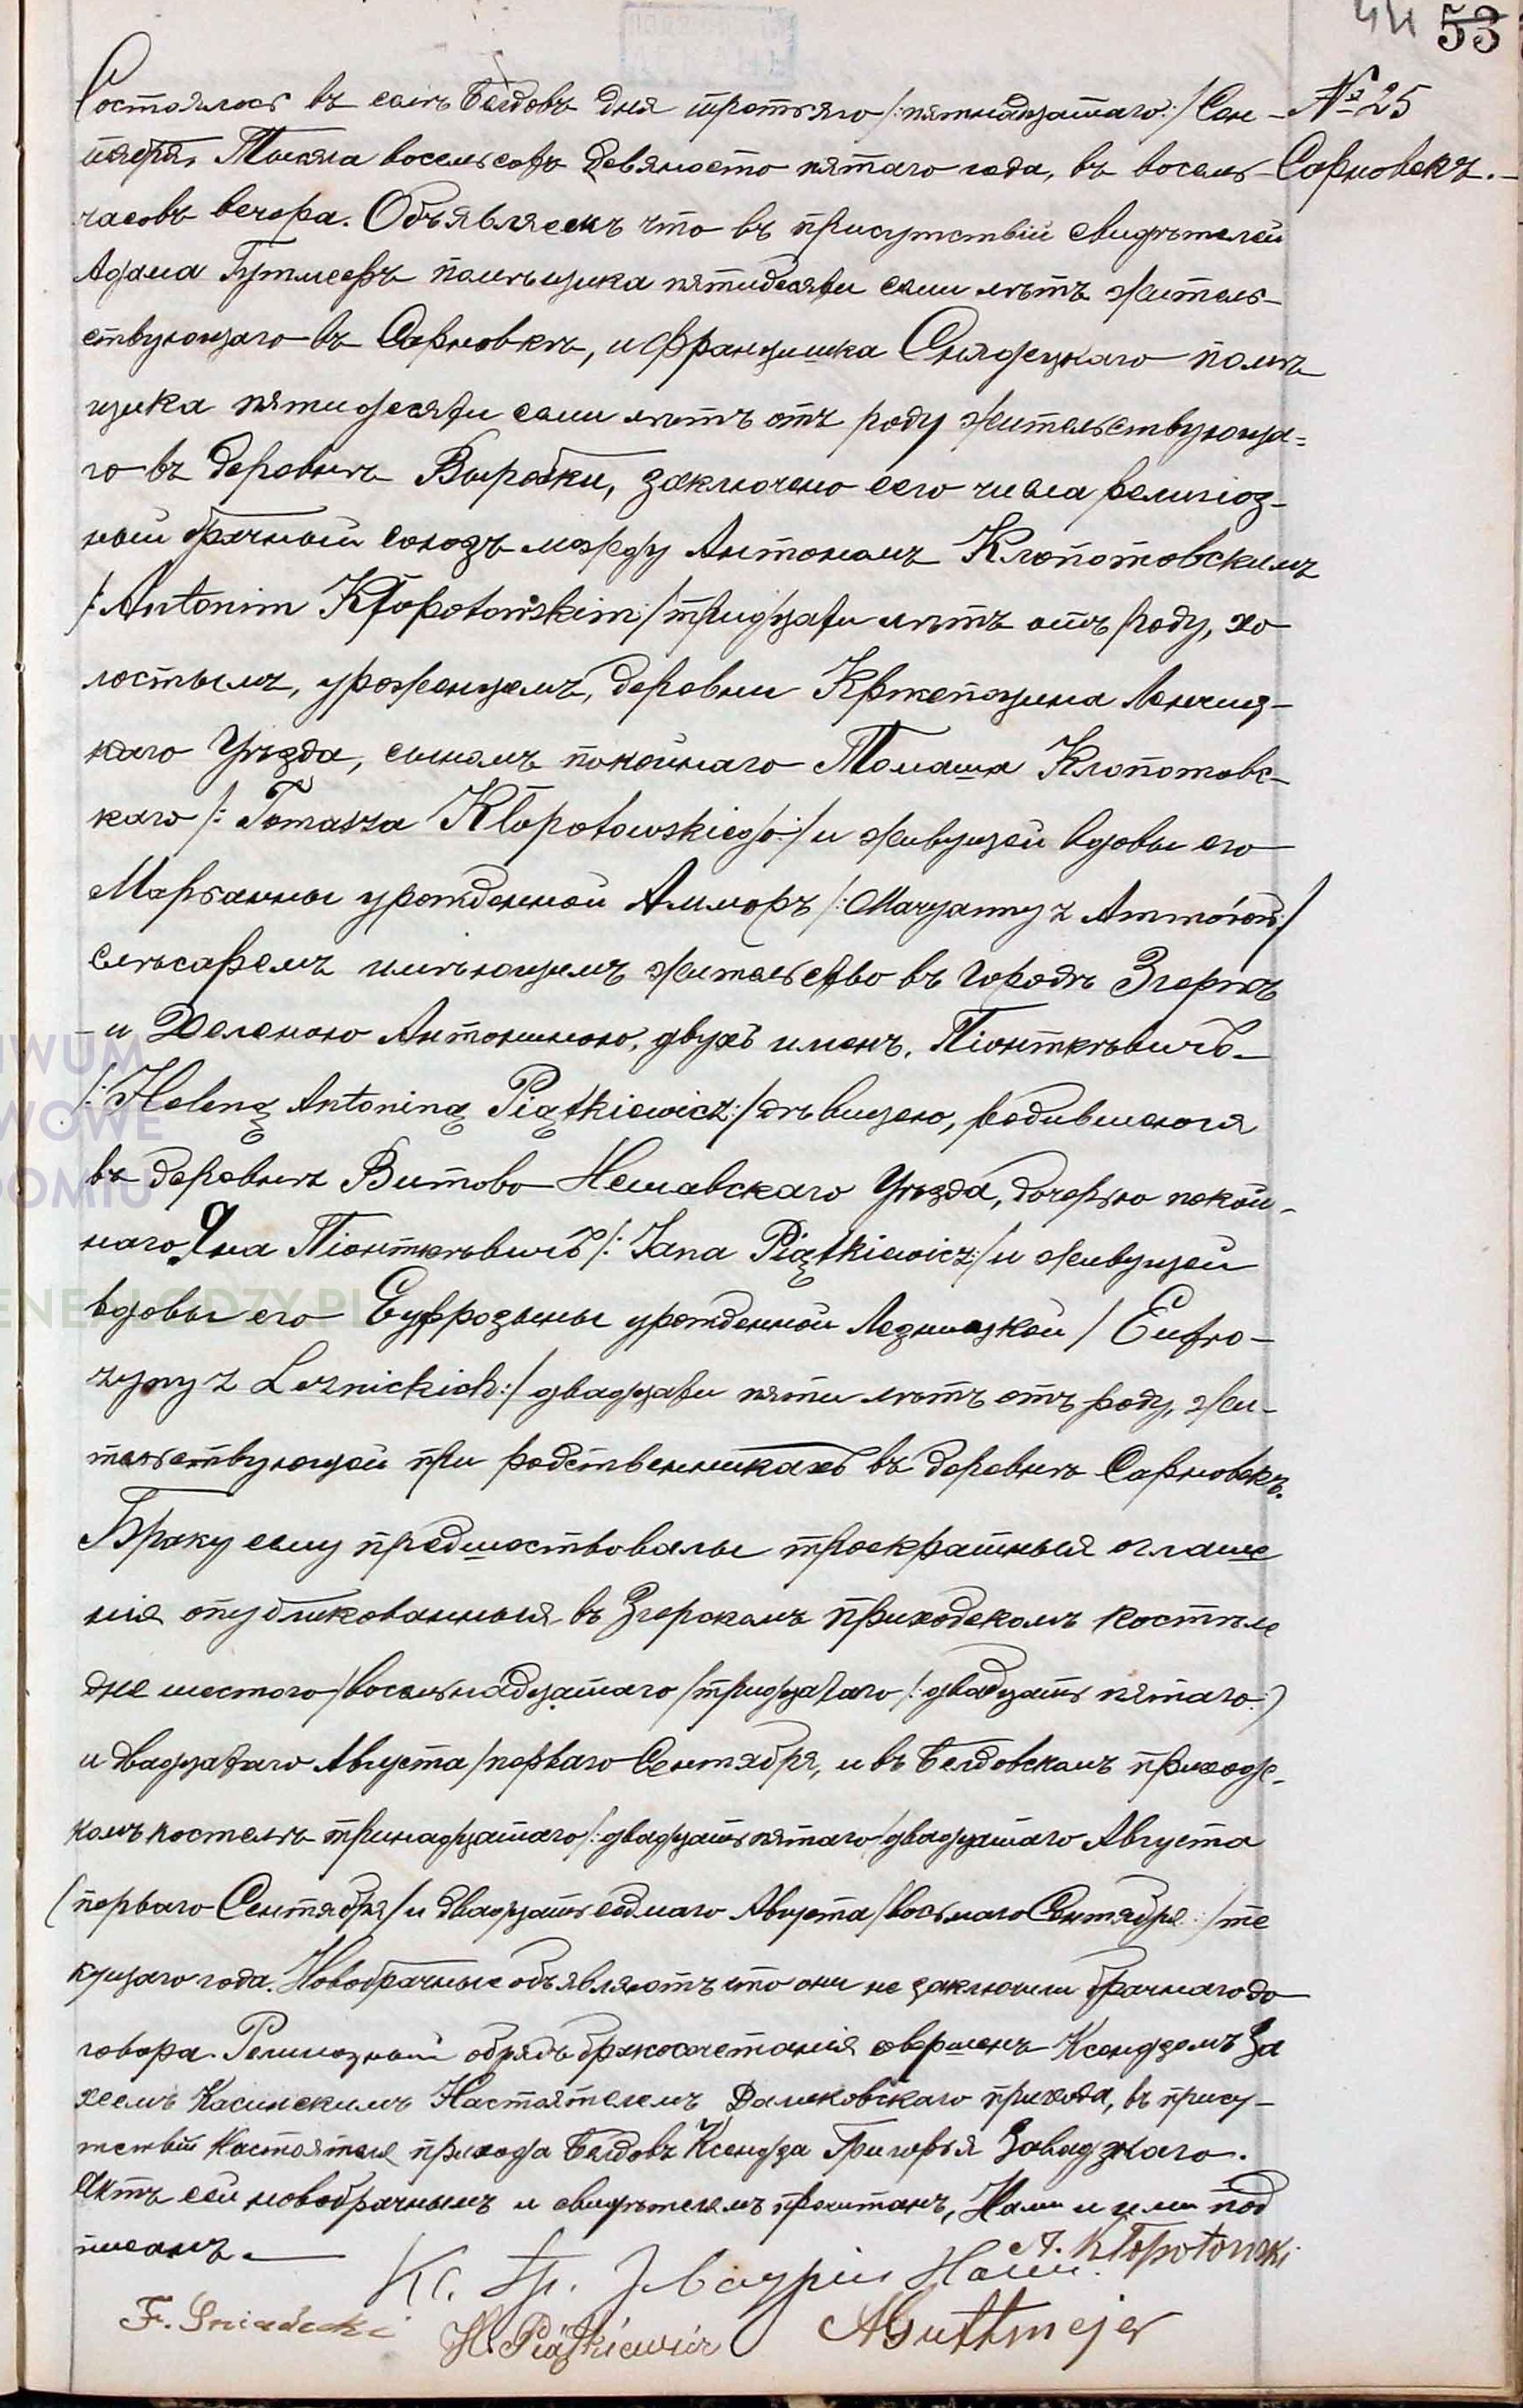 44 53
Состоялось въ селѣ Бѣлдовъ дня третьяго /:пятнадцатаго:/ Сен-
тября, Тысяча восемьсотъ девяносто пятаго года, въ восемь
№ 25
Сарновекъ.-
часовъ вечера. Объявляемъ что въ присутствіи свидѣтелей
Адама Гутмееръ помѣщика пятидесяти семи лѣтъ житель-
ствующаго въ Сарновкѣ, и Францишка Снядецкаго помѣ-
щика пятидесяти семи лѣтъ отъ роду жительствующа=
го въ деревнѣ Выробки, заключено сего числа религіоз-
ный брачный союзъ между Антономъ Клопотовскимъ
/:Antonim Kłopotowskim:/ тридцати лѣтъ отъ роду, хо-
лостымъ, урожденцемъ, деревни Кржепоцина Ленчиц-
каго Уѣзда, сыномъ покойнаго Томаша Клопотовс-
каго /: Tomasza Kłopotowskiego:/ и живущей вдовы его
Марьанны урожденной Амморъ /:Maryanny z Ammorów:/
слѣсаремъ имѣющимъ жительство въ городѣ Згержъ
- и Хеленою Антониною, двухъ именъ, Піонткѣвичъ-
/: Heleną Antoniną Piątkiewicz:/ дѣвицею, родившеюся
въ деревнѣ Витово Нешавскаго Уѣзда, дочерью покой-
наго Яна Піонткѣвичъ /: Jana Piątkiewicz:/ и живущей
вдовы его Еуфрозыны урожденной Лезницкой / Eufro-
zyny z Leznickich:/ двадцати пяти лѣтъ отъ роду, жи-
тельствующей при родственникахъ въ деревнѣ Сарновекъ.
Браку сему предшествовалы троекратныя оглаше
нія опубликованныя въ Згерскомъ приходскомъ костеле
дне шестого /восемьнадцатаго /тридцатаго /:двадцать пятаго:)
и двадцатаго Августа /перваго Сентября, и въ Белдовскомъ приходс-
комъ костелѣ тринадцатаго /:двадцать пятаго /двадцатаго Августа
(перваго Сентября/ и двадцать седмаго Августа /восьмаго Сентября:/ те
кущаго года. Новобрачные объявляютъ что они не заключили брачнаго до-
говора. Религіозный обрядъ бракосочетанія совершенъ Ксендземъ За
хеемъ Касинскимъ Настоятелемъ Даликовскаго прихода, въ прису-
тствіи Настоятеля прихода Белдовъ Ксендза Григорья Завадзкаго.
Актъ сей новобрачнымъ и свидѣтелямъ прочитанъ, Нами и ими под
писанъ.
A. Kłopotowski
F. Sniadecki H. Piątkiewicz AGuttmejer